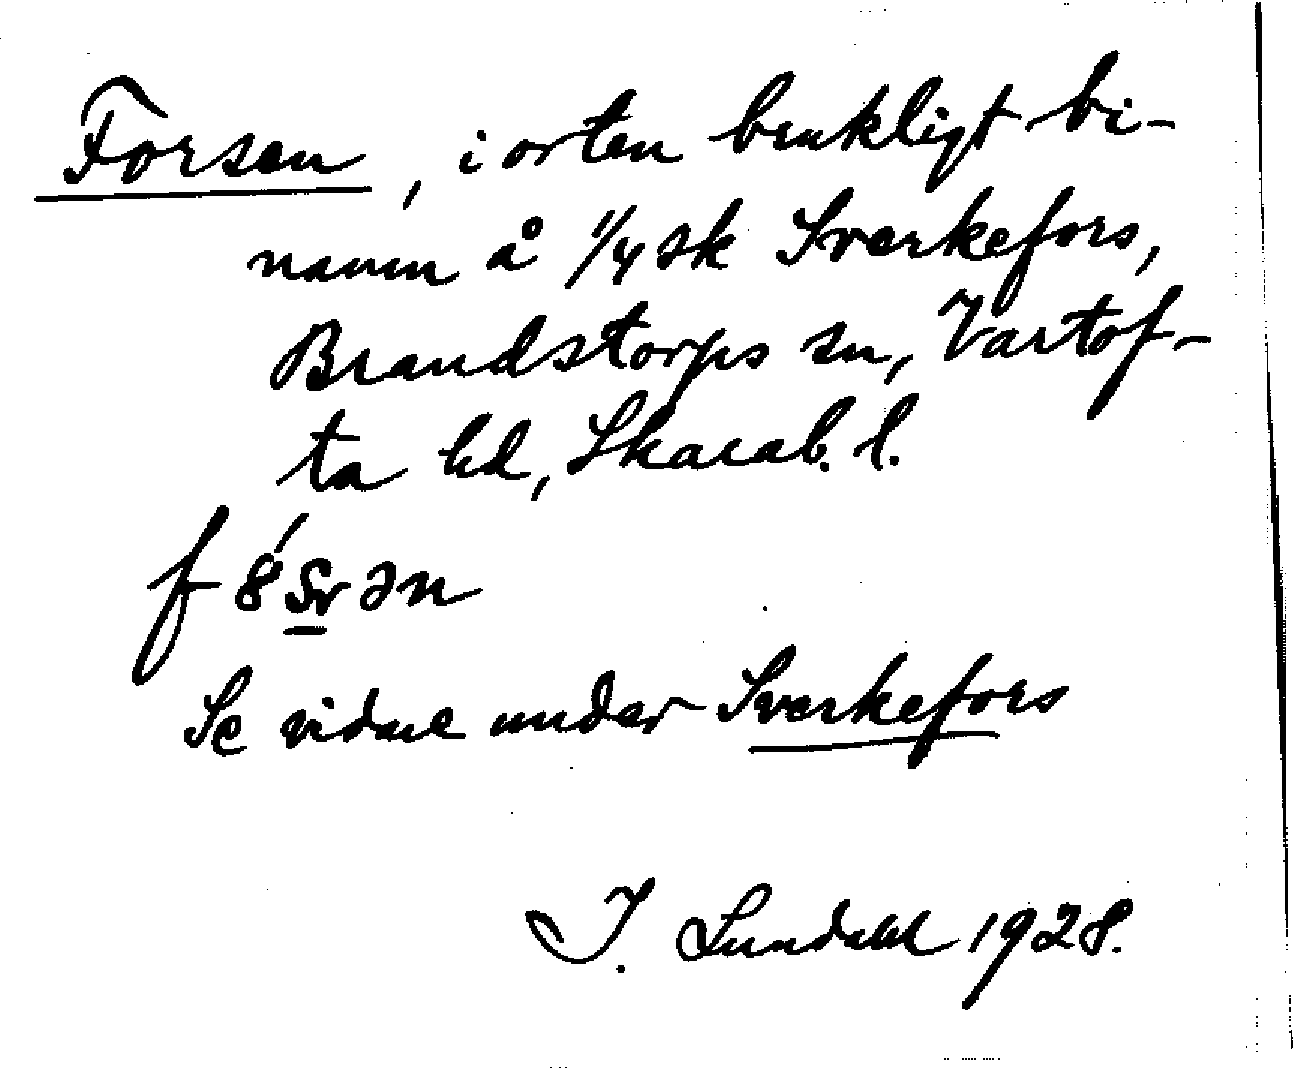 Forsen, i orten brukligt bi-
namn å 1/4 sk Sverkefors,
Brandstorps sn, Vartof-
ta hd, Skarab. l.
f8́srən
Se vidare under Sverkefors
I. Lundahl 1928.